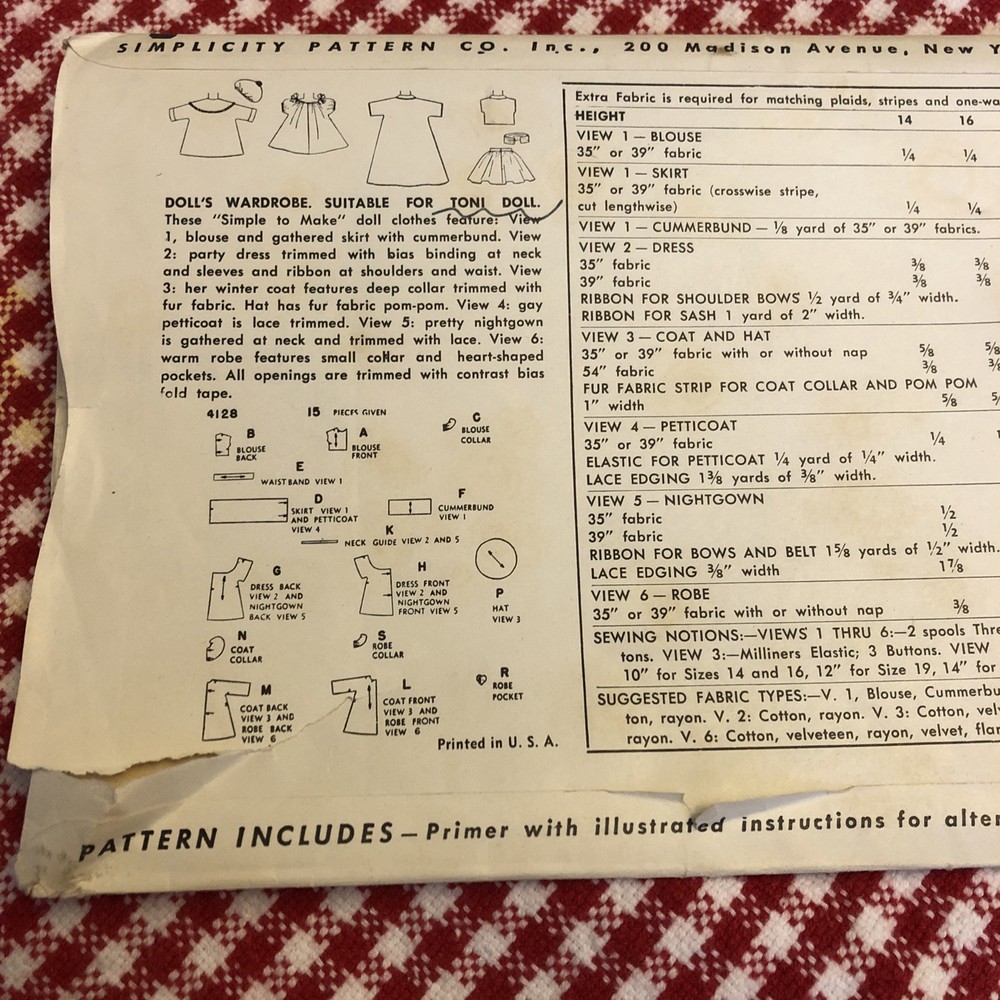 SIMPLICITY PATTERN CO. Inc., 200 Madison Avenue, New Y
DOLL'S WARDROBE. SUITABLE FOR TONI DOLL.
These "Simple to Make" doll clothes feature: View
1, blouse and gathered skirt with cummerbund. View
2: party dress trimmed with bias binding at neck
and sleeves and ribbon at shoulders and waist. View
3: her winter coat features deep collar trimmed with
fur fabric. Hat has fur fabric pom-pom. View 4: gay
petticoat is lace trimmed. View 5: pretty nightgown
is gathered at neck and trimmed with lace. View 6:
warm robe features small collar and heart-shaped
pockets. All openings are trimmed with contrast bias
fold tape.
4128 15 PIECES GIVEN
B BLOUSE BACK
A BLOUSE FRONT
C BLOUSE COLLAR
E WAISTBAND VIEW 1
D SKIRT VIEW 1 AND PETTICOAT VIEW 4
F CUMMERBUND VIEW 1
K NECK GUIDE VIEW 2 AND 5
G DRESS BACK VIEW 2 AND NIGHTGOWN BACK VIEW 5
H DRESS FRONT VIEW 2 AND NIGHTGOWN FRONT VIEW 5
P HAT VIEW 3
N COAT COLLAR
S ROBE COLLAR
R ROBE POCKET
M COAT BACK VIEW 3 AND ROBE BACK VIEW 6
L COAT FRONT VIEW 3 AND ROBE FRONT VIEW 6
Printed in U. S. A.
Extra Fabric is required for matching plaids, stripes and one-wa
HEIGHT 14 16
VIEW 1 — BLOUSE
35" or 39" fabric ¼ ¼
VIEW 1 — SKIRT
35" or 39" fabric (crosswise stripe,
cut lengthwise) ¼ ¼
VIEW 1 — CUMMERBUND — ⅛ yard of 35" or 39" fabrics.
VIEW 2 — DRESS
35" fabric ⅜ ⅜
39" fabric ⅜ ⅜
RIBBON FOR SHOULDER BOWS ½ yard of ¾" width.
RIBBON FOR SASH 1 yard of 2" width.
VIEW 3 — COAT AND HAT
35" or 39" fabric with or without nap ⅝ ⅝
54" fabric ⅜ ⅜
FUR FABRIC STRIP FOR COAT COLLAR AND POM POM
1" width ⅝
VIEW 4 — PETTICOAT
35" or 39" fabric ¼
ELASTIC FOR PETTICOAT ¼ yard of ¼" width.
LACE EDGING 1⅜ yards of ⅜" width.
VIEW 5 — NIGHTGOWN
35" fabric ½
39" fabric ½
RIBBON FOR BOWS AND BELT 1⅝ yards of ½" width.
LACE EDGING ⅜" width 1⅞
VIEW 6 — ROBE
35" or 39" fabric with or without nap ⅜
SEWING NOTIONS:—VIEWS 1 THRU 6:—2 spools Thre
tons. VIEW 3:—Milliners Elastic; 3 Buttons. VIEW
10" for Sizes 14 and 16, 12" for Size 19, 14" for
SUGGESTED FABRIC TYPES:—V. 1, Blouse, Cummerbu
ton, rayon. V. 2: Cotton, rayon. V. 3: Cotton, velv
rayon. V. 6: Cotton, velveteen, rayon, velvet, flan
PATTERN INCLUDES — Primer with illustrated instructions for alter